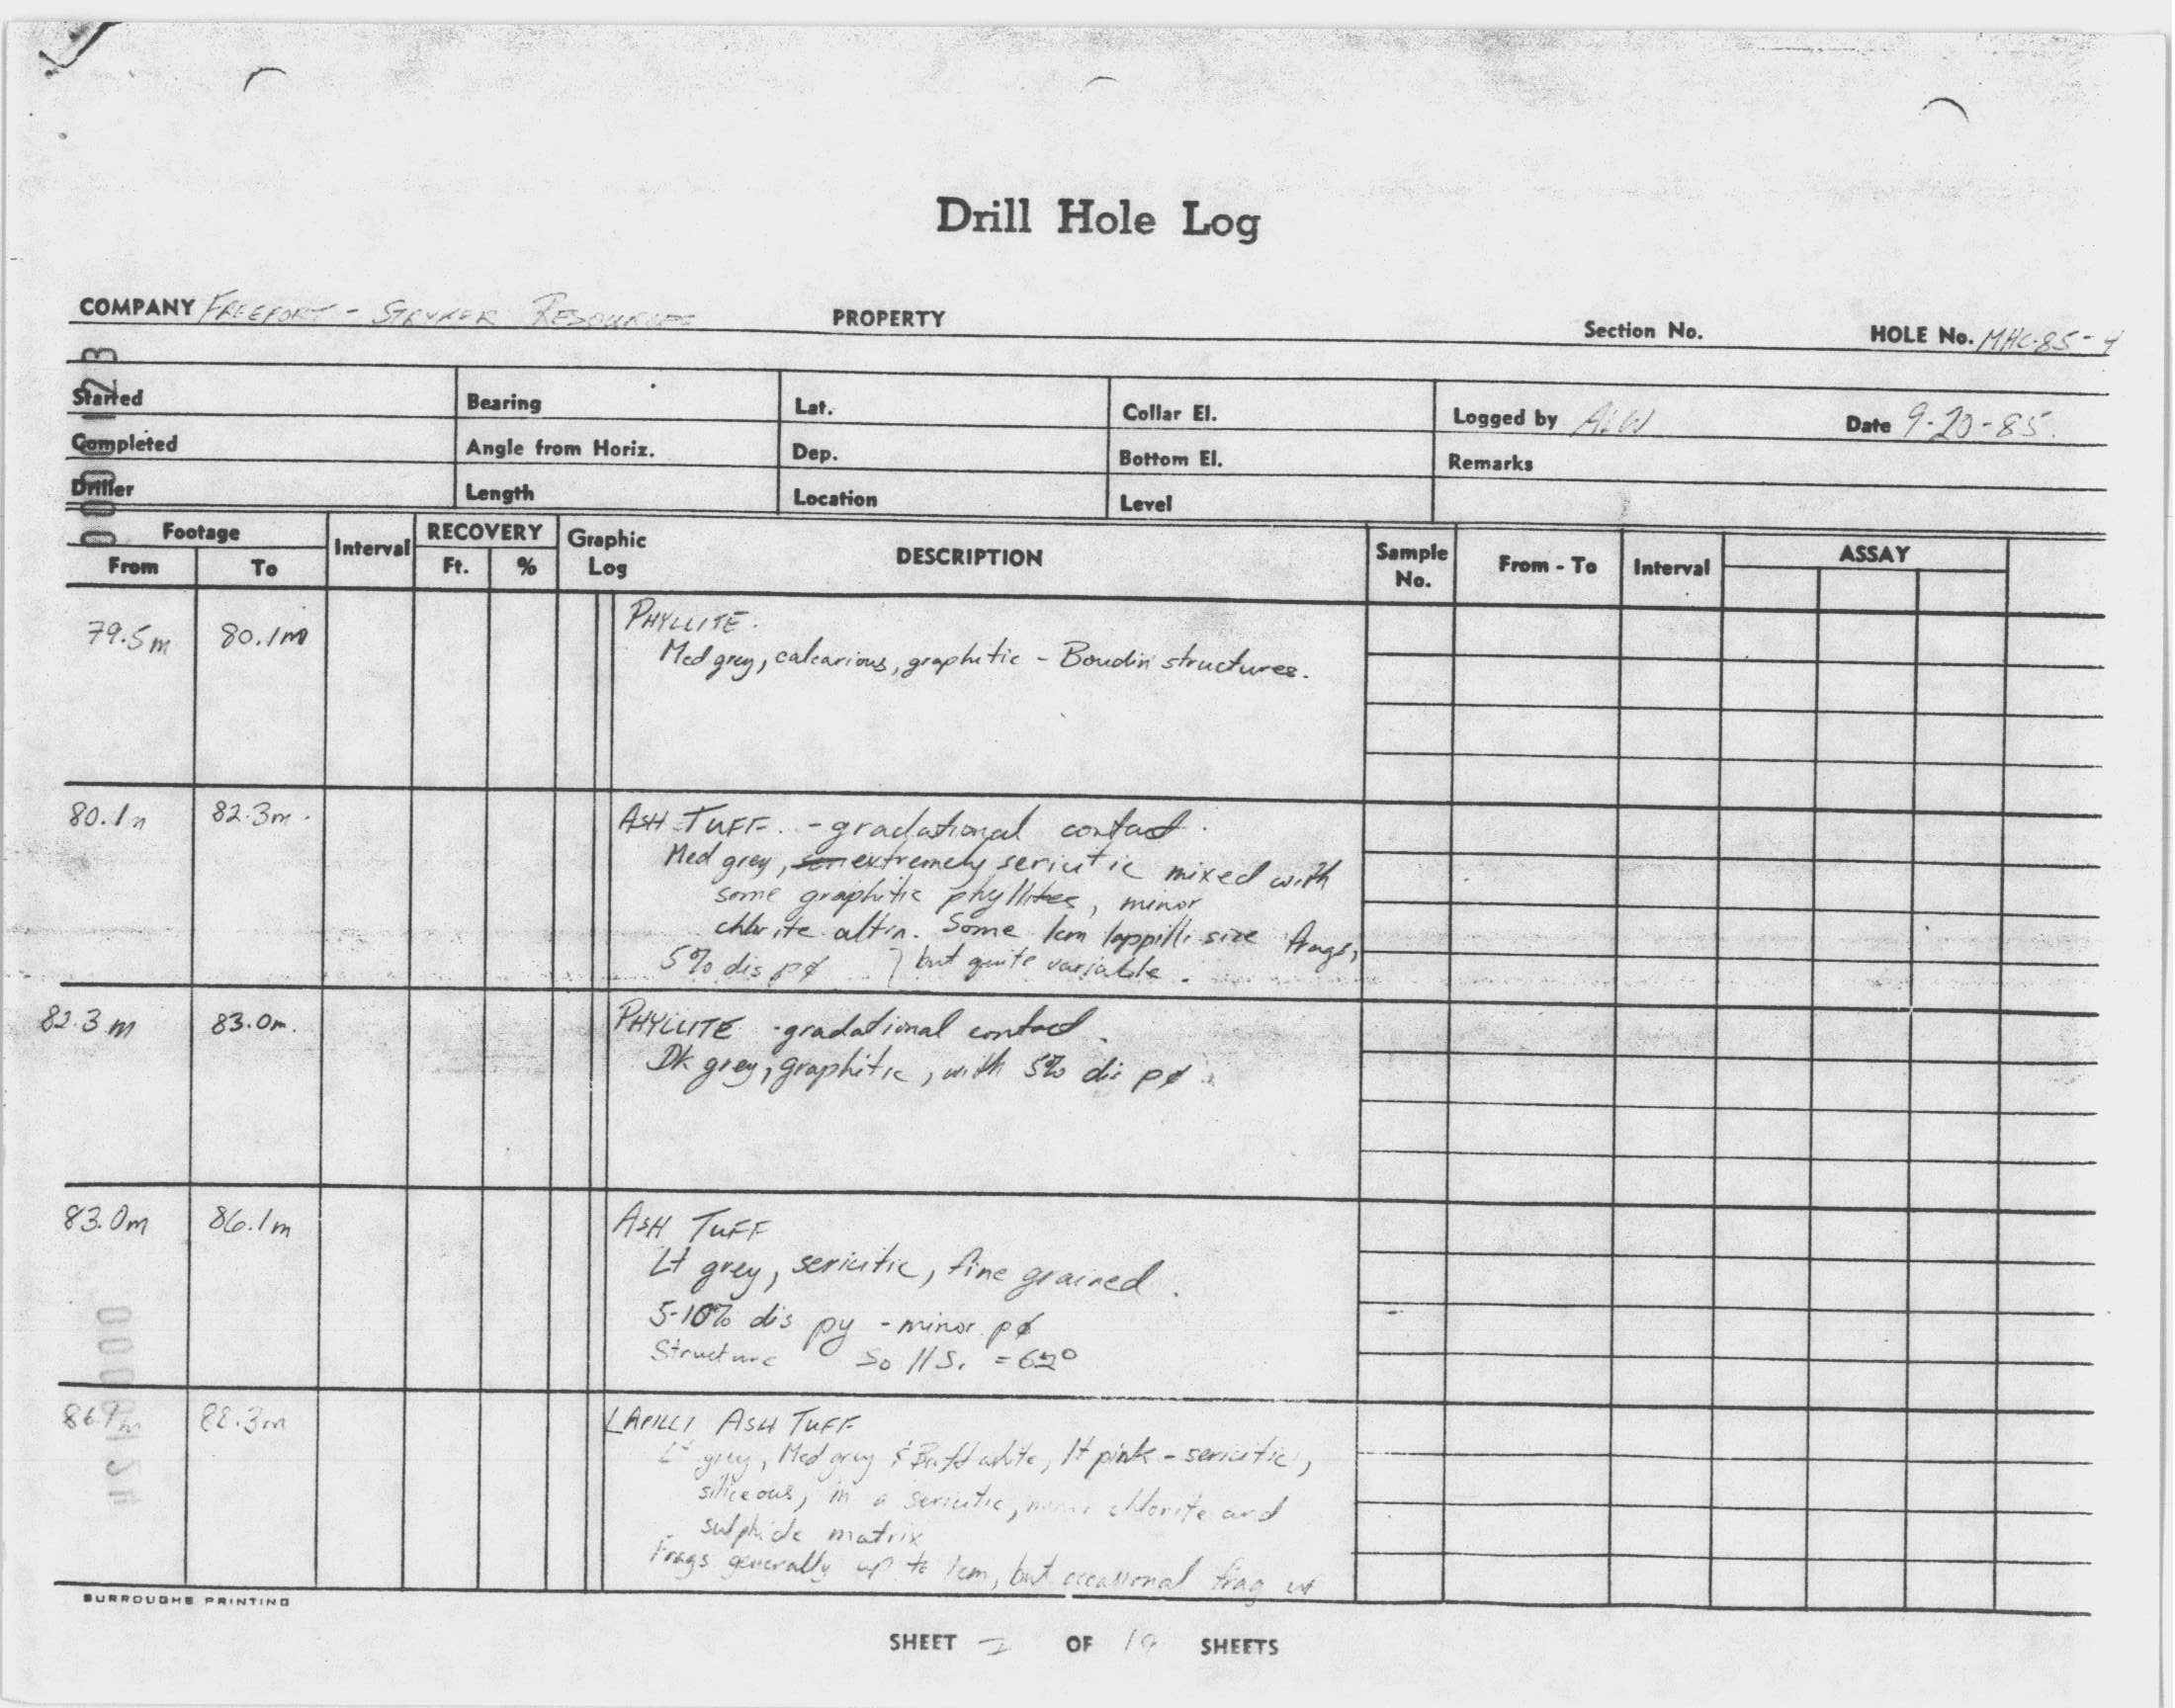 Drill Hole Log
COMPANY FREEPORT - STRYKER RESOURCES PROPERTY Section No. HOLE No. MHC-85-4
Started Bearing Lat. Collar El. Logged by Date 9-20-85.
Completed Angle from Horiz. Dep. Bottom El. Remarks
Driller Length Location Level
Footage Interval RECOVERY Graphic Log DESCRIPTION Sample No. From - To Interval ASSAY
From To Ft. %
79.5m 80.1m PHYLLITE.
Med grey, calcarious, graphitic - Boudin structures.
80.1m 82.3m. ASH TUFF. - gradational contact.
Med grey, extremely sericitic mixed with
some graphitic phyllites, minor
chlorite altn. Some 1cm lappilli size frags,
5% dis pø } but quite variable.
82.3 m 83.0m. PHYLLITE - gradational contact.
Dk grey, graphitic, with 5% dis pø.
83.0m 86.1m ASH TUFF
Lt grey, sericitic, fine grained.
5-10% dis py - minor pø
Structure So // S1 = 62°
86.1m 88.3m LAPILLI ASH TUFF
Lt grey, Med grey & Buff white, lt pink - sericitic,
siliceous, in a sericitic, minor chlorite and
sulphide matrix
Frags generally up to 1cm, but occasional frag
BURROUGHS PRINTING
SHEET 2 OF 19 SHEETS